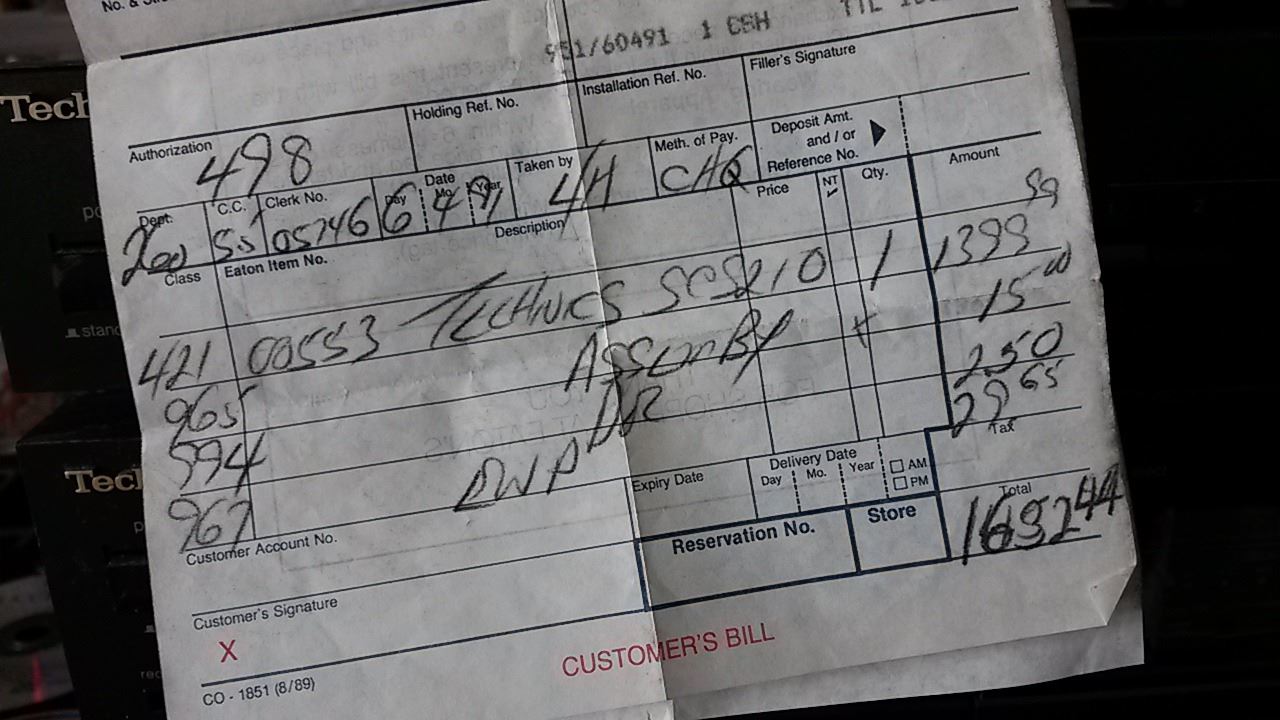 No. &
951/60491 1 CSH TTL
Tech
Authorization 498
Holding Ref. No.
Installation Ref. No.
Filler's Signature
Dept. 260
C.C. 55
Clerk No. 05746
Date
Day 6 Mo. 4 Year 91
Taken by
Meth. of Pay. CHQ
Deposit Amt.
and / or
Reference No.
Class
Eaton Item No.
Description
Price
NT
Qty.
Amount
421 00553 TECHNICS SCS210 1 1399 99
965 ASSEMBY 15 00
994 2 50
967 29 65
Tax
Customer Account No.
Expiry Date
Delivery Date
Day Mo. Year
AM
PM
Total
Reservation No.
Store
44
Customer's Signature
X
CUSTOMER'S BILL
CO - 1851 (8/89)
Tec
stand
rec